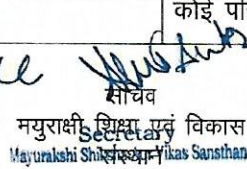 कोई
सचिव
मयुराक्षी शिक्षा एवं विकास
Secretary
संस्थान
Mayurakshi Shiksha Vikas Sansthan